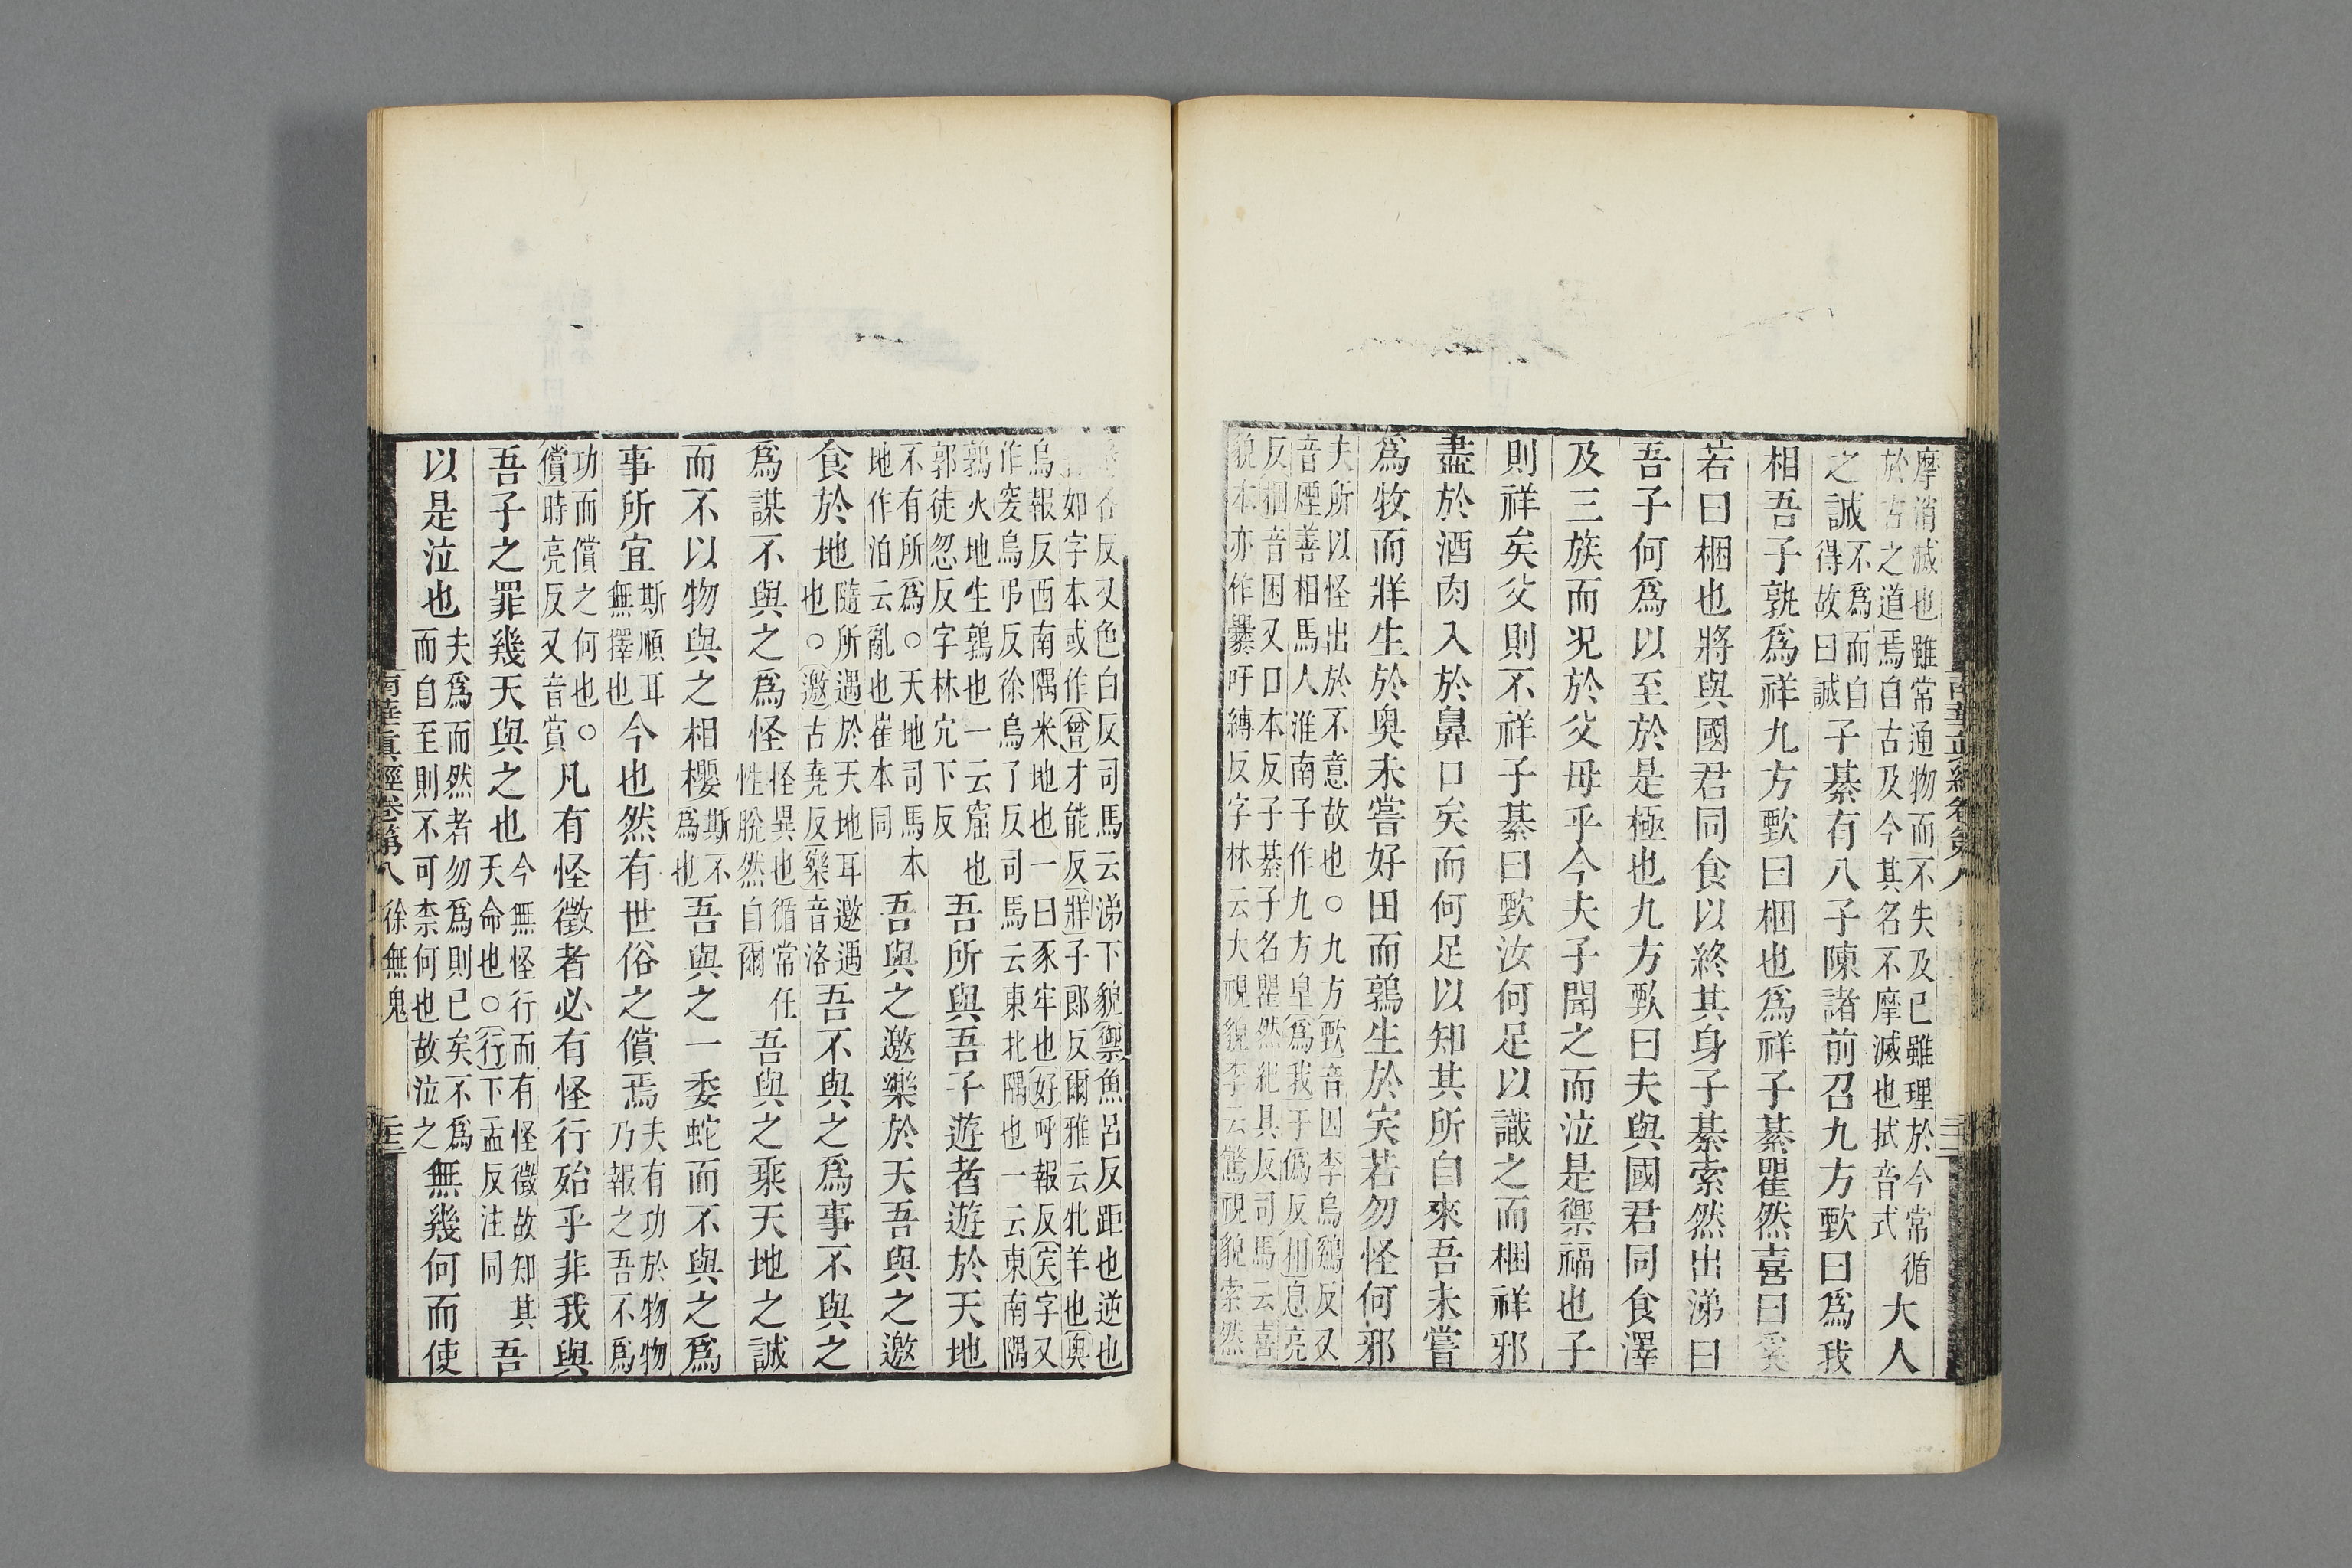 摩消滅也雖常通物而不失及已雖理於今常循
於古之道焉自古及今其名不摩滅也拭音式
大人
之誠
不爲而自
得故曰誠
子綦有八子陳諸前召九方歅曰爲我
相吾子孰爲祥九方歅曰梱也爲祥子綦瞿然喜曰奚
若曰梱也將與國君同食以終其身子綦索然出涕曰
吾子何爲以至於是極也九方歅曰夫與國君同食澤
及三族而况於父母乎今夫子聞之而泣是禦福也子
則祥矣父則不祥子綦曰歅汝何足以識之而梱祥邪
盡於酒肉入於鼻口矣而何足以知其所自來吾未嘗
爲牧而牂生於奧未嘗好田而鶉生於宎若勿怪何邪
夫所以怪出於不意故也○九方歅音因李烏雞反又
音煙善相馬人淮南子作九方皐爲我于僞反相息亮
反梱音困又口本反子綦子名瞿然紀具反司馬云喜
貌本亦作矍吁縛反字林云大視貌李云驚視貌索然
各反又色白反司馬云涕下貌禦魚呂反距也逆也
如字本或作曾才能反牂子郎反爾雅云牝羊也奧
烏報反西南隅未地也一曰豕牢也好呼報反宎字又
作窔烏弔反徐烏了反司馬云東北隅也一云東南隅
鶉火地生鶉也一云窟也
郭徒忽反字林宂下反
吾所與吾子遊者遊於天地
不有所爲○天地司馬本
地作泊云亂也崔本同
吾與之邀樂於天吾與之邀
食於地
隨所遇於天地耳邀遇
也○邀古堯反樂音洛
吾不與之爲事不與之
爲謀不與之爲怪
怪異也循常任
性脫然自爾
吾與之乘天地之誠
而不以物與之相櫻
斯不
爲也
吾與之一委蛇而不與之爲
事所宜
斯順耳
無擇也
今也然有世俗之償焉
夫有功於物物
乃報之吾不爲
功而償之何也○
償時亮反又音賞
凡有怪徵者必有怪行殆乎非我與
吾子之罪幾天與之也
今無怪行而有怪徵故知其
天命也○行下孟反注同
吾
以是泣也
夫爲而然者勿爲則已矣不爲
而自至則不可柰何也故泣之
無幾何而使
南華眞經卷第八 徐無鬼